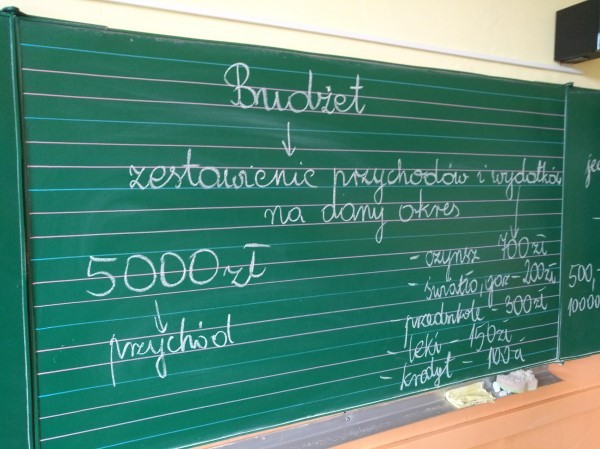 Budżet
zestawienie przychodów i wydatków
na dany okres
5000 zł
przychód
- czynsz 700 zł
- światło, gaz - 200 zł
przedszkole - 300 zł
- leki - 150 zł
- kredyt - 100 zł
500,-
10000